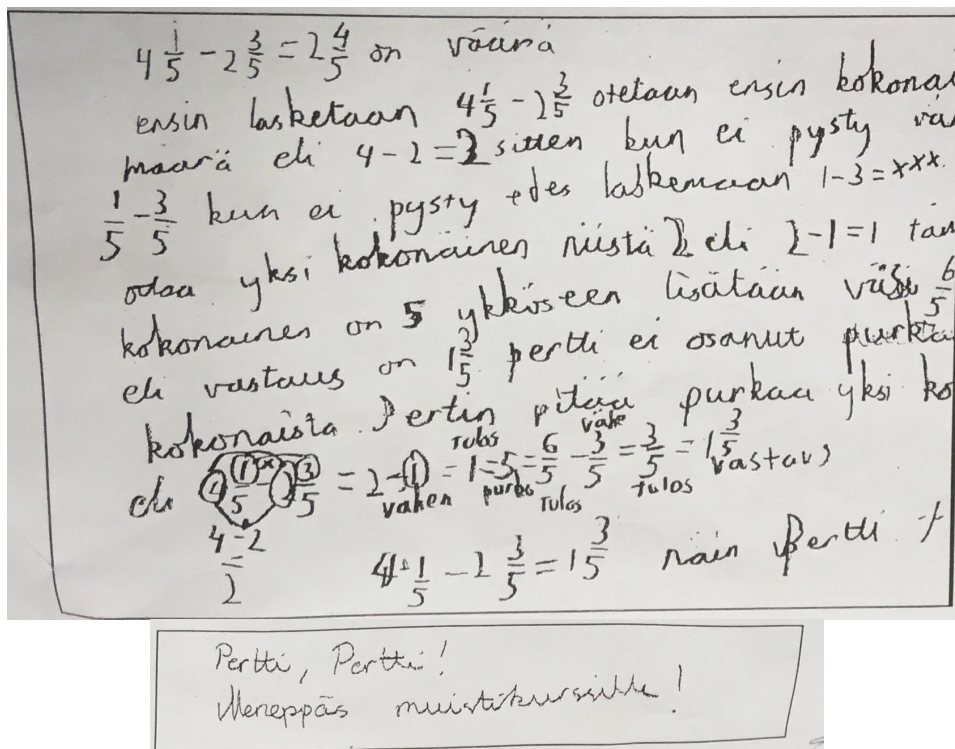 4 1/5 - 2 3/5 = 2 4/5 on väärä
ensin lasketaan 4 1/5 - 2 3/5 otetaan ensin kokonai
määrä eli 4 - 2 = 2 sitten kun ei pysty vä
1/5 - 3/5 kun ei pysty edes laskemaan 1 - 3 = xxx.
yksi kokonainen niistä 2 eli 2 - 1 = 1
kokonainen on 5 ykköseen lisätään 6/5
eli vastaus on 1 3/5 pertti ei osanut purkta
kokonaista Pertin pitää purkaa yksi ko
eli 4 1/5 - 2 3/5 = 2 - 1 = 1 - 5 = 6/5 - 3/5 = 3/5 = 1 3/5
Tulos vähe
vähen purka Tulos Tulos vastaus
4 - 2
2
4 1/5 - 2 3/5 = 1 3/5 näin Pertti
Pertti, Pertti!
Meneppäs muistikurssille!